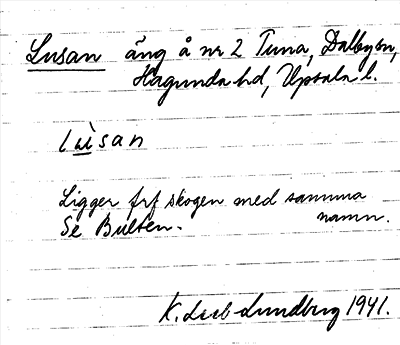 Lusan äng å nr 2 Tuna, Dalby sn,
Hagunda hd, Upsala l.
lùsan
Ligger frf skogen med samma
namn.
Se Bulten.
K. Lundberg 1941.